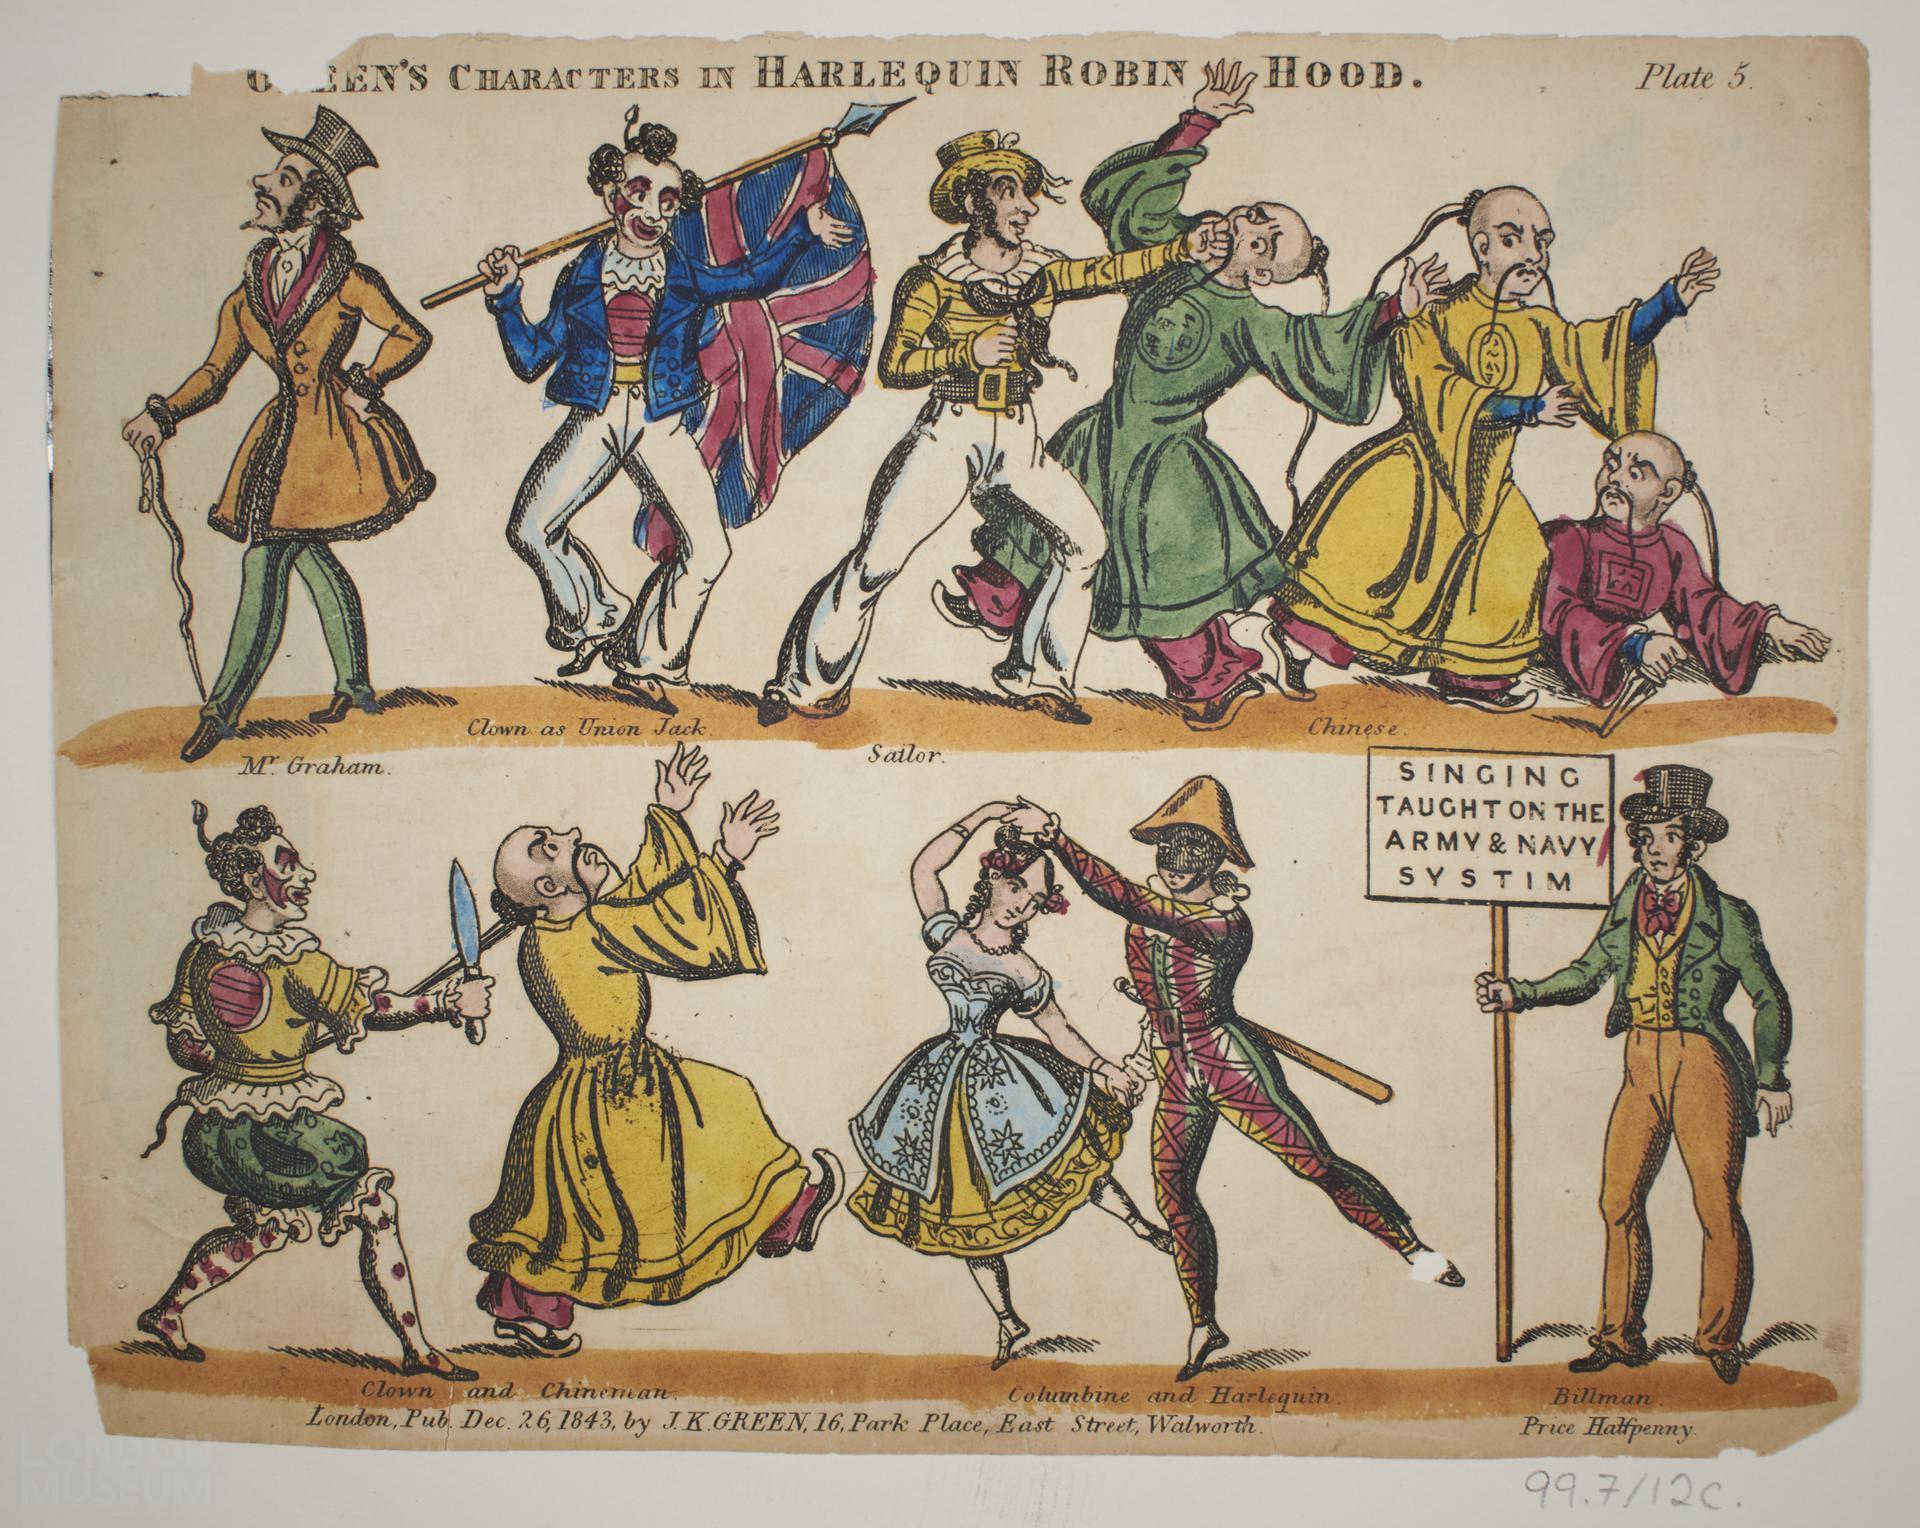 GREEN'S CHARACTERS IN HARLEQUIN ROBIN HOOD.
Plate 5.
Clown as Union Jack.
Chinese.
Mr. Graham.
Sailor.
SINGING
TAUGHT ON THE
ARMY & NAVY
SYSTIM
Clown and Chineman.
Columbine and Harlequin.
Billman.
London, Pub. Dec. 26, 1843, by J.K. GREEN, 16, Park Place, East Street, Walworth.
Price Halfpenny.
LONDON
MUSEUM
99.7/12c.